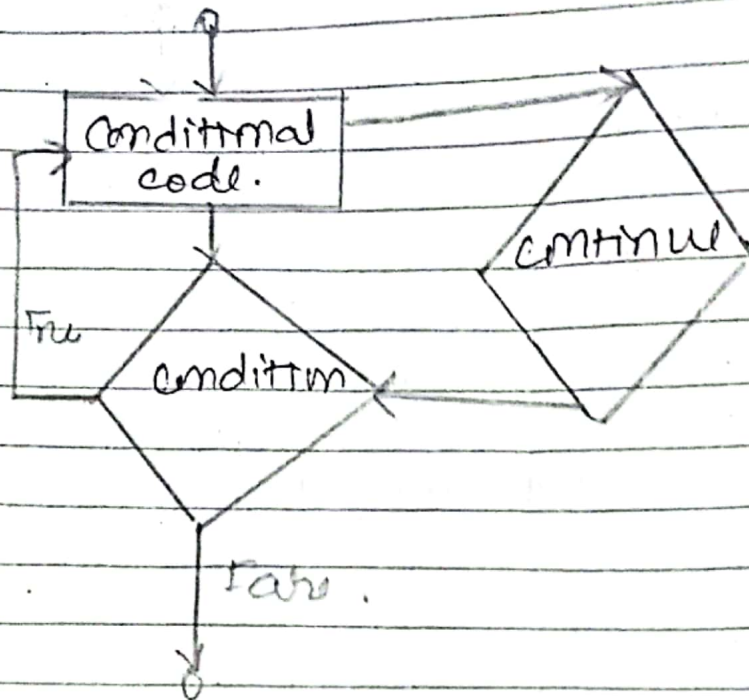 Conditional
code.
continue
True
condition
False.